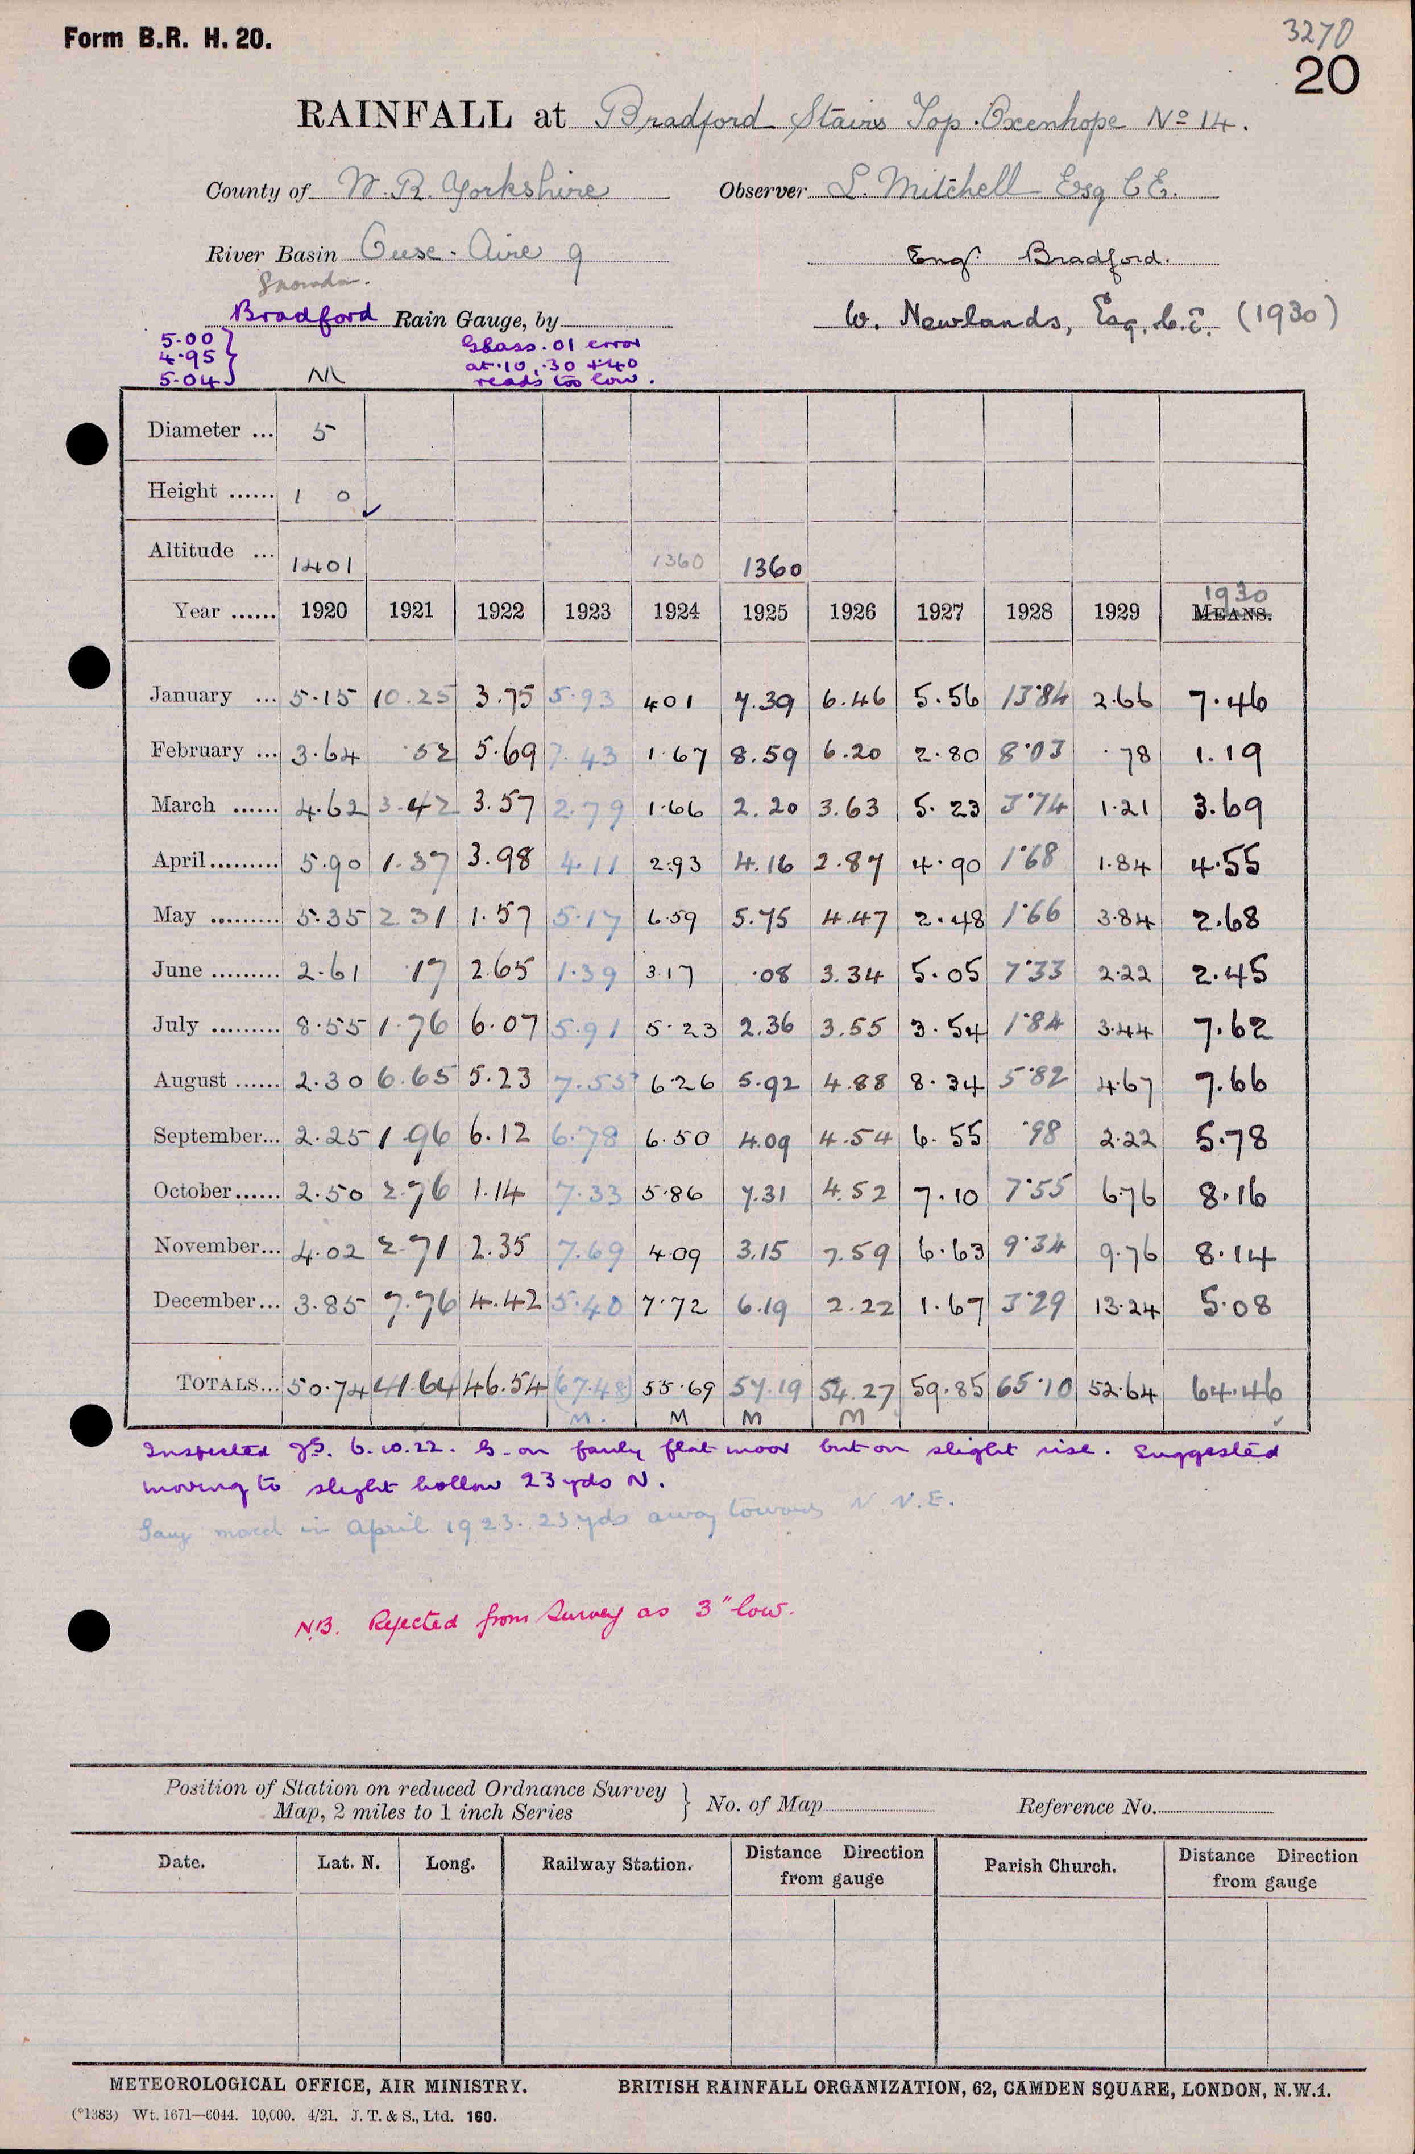 Form B.R. H. 20.
3270
20
RAINFALL at Bradford Stairs Top. Oxenhope No 14.
County of W. R. Yorkshire Observer L. Mitchell Esq C.E.
River Basin Ouse - Aire 9 Engr Bradford.
Snowdn.
Bradford Rain Gauge, by W. Newlands, Esq. C.E. (1930)
5.00
4.95
5.04
M
Glass .01 error
at .10, .30 + 40
reads too low.
Diameter ... 5
Height ...... 1 0
Altitude ... 1401 1360 1360
1930
Year ...... 1920 1921 1922 1923 1924 1925 1926 1927 1928 1929 MEANS.
January ... 5.15 10.25 3.75 5.93 4.01 7.39 6.46 5.56 13.84 2.66 7.46
February ... 3.64 .52 5.69 7.43 1.67 8.59 6.20 2.80 8.03 .78 1.19
March ...... 4.62 3.42 3.57 2.79 1.66 2.20 3.63 5.23 3.74 1.21 3.69
April......... 5.90 1.37 3.98 4.11 2.93 4.16 2.87 4.90 1.68 1.84 4.55
May ......... 5.35 2.31 1.57 5.17 6.59 5.75 4.47 2.48 1.66 3.84 2.68
June ......... 2.61 .17 2.65 1.39 3.17 .08 3.34 5.05 7.33 2.22 2.45
July ......... 8.55 1.76 6.07 5.91 5.23 2.36 3.55 3.54 1.84 3.44 7.62
August ...... 2.30 6.65 5.23 7.55 6.26 5.92 4.88 8.34 5.82 4.67 7.66
September... 2.25 1.96 6.12 6.78 6.50 4.09 4.54 6.55 .98 2.22 5.78
October...... 2.50 2.76 1.14 7.33 5.86 7.31 4.52 7.10 7.55 6.76 8.16
November... 4.02 2.71 2.35 7.69 4.09 3.15 7.59 6.63 9.34 9.76 8.14
December... 3.85 7.76 4.42 5.40 7.72 6.19 2.22 1.67 3.29 13.24 5.08
TOTALS... 50.74 41.64 46.54 (67.48) 55.69 57.19 54.27 59.85 65.10 52.64 64.46
M. M M M
Inspected 6.10.22. G. on fairly flat moor but on slight rise. Suggested
moving to slight hollow 23 yds N.
Gauge moved in April 1923. 23 yds away towards N. N.E.
N.B. Rejected from Survey as 3" low.
Position of Station on reduced Ordnance Survey
Map, 2 miles to 1 inch Series } No. of Map Reference No.
Date. Lat. N. Long. Railway Station. Distance Direction from gauge Parish Church. Distance Direction from gauge
METEOROLOGICAL OFFICE, AIR MINISTRY. BRITISH RAINFALL ORGANIZATION, 62, CAMDEN SQUARE, LONDON, N.W.1.
(*1383) Wt. 1671—6044. 10,000. 4/21. J. T. & S., Ltd. 160.